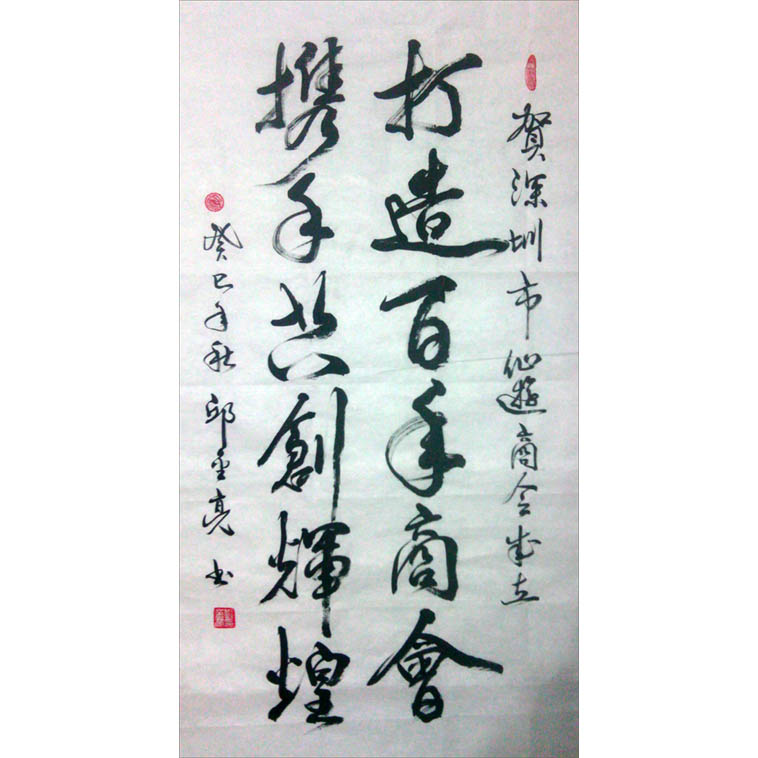 贺深圳市仙遊商会成立
打造百年商會
携手共創輝煌
癸巳年秋 邱金亮书